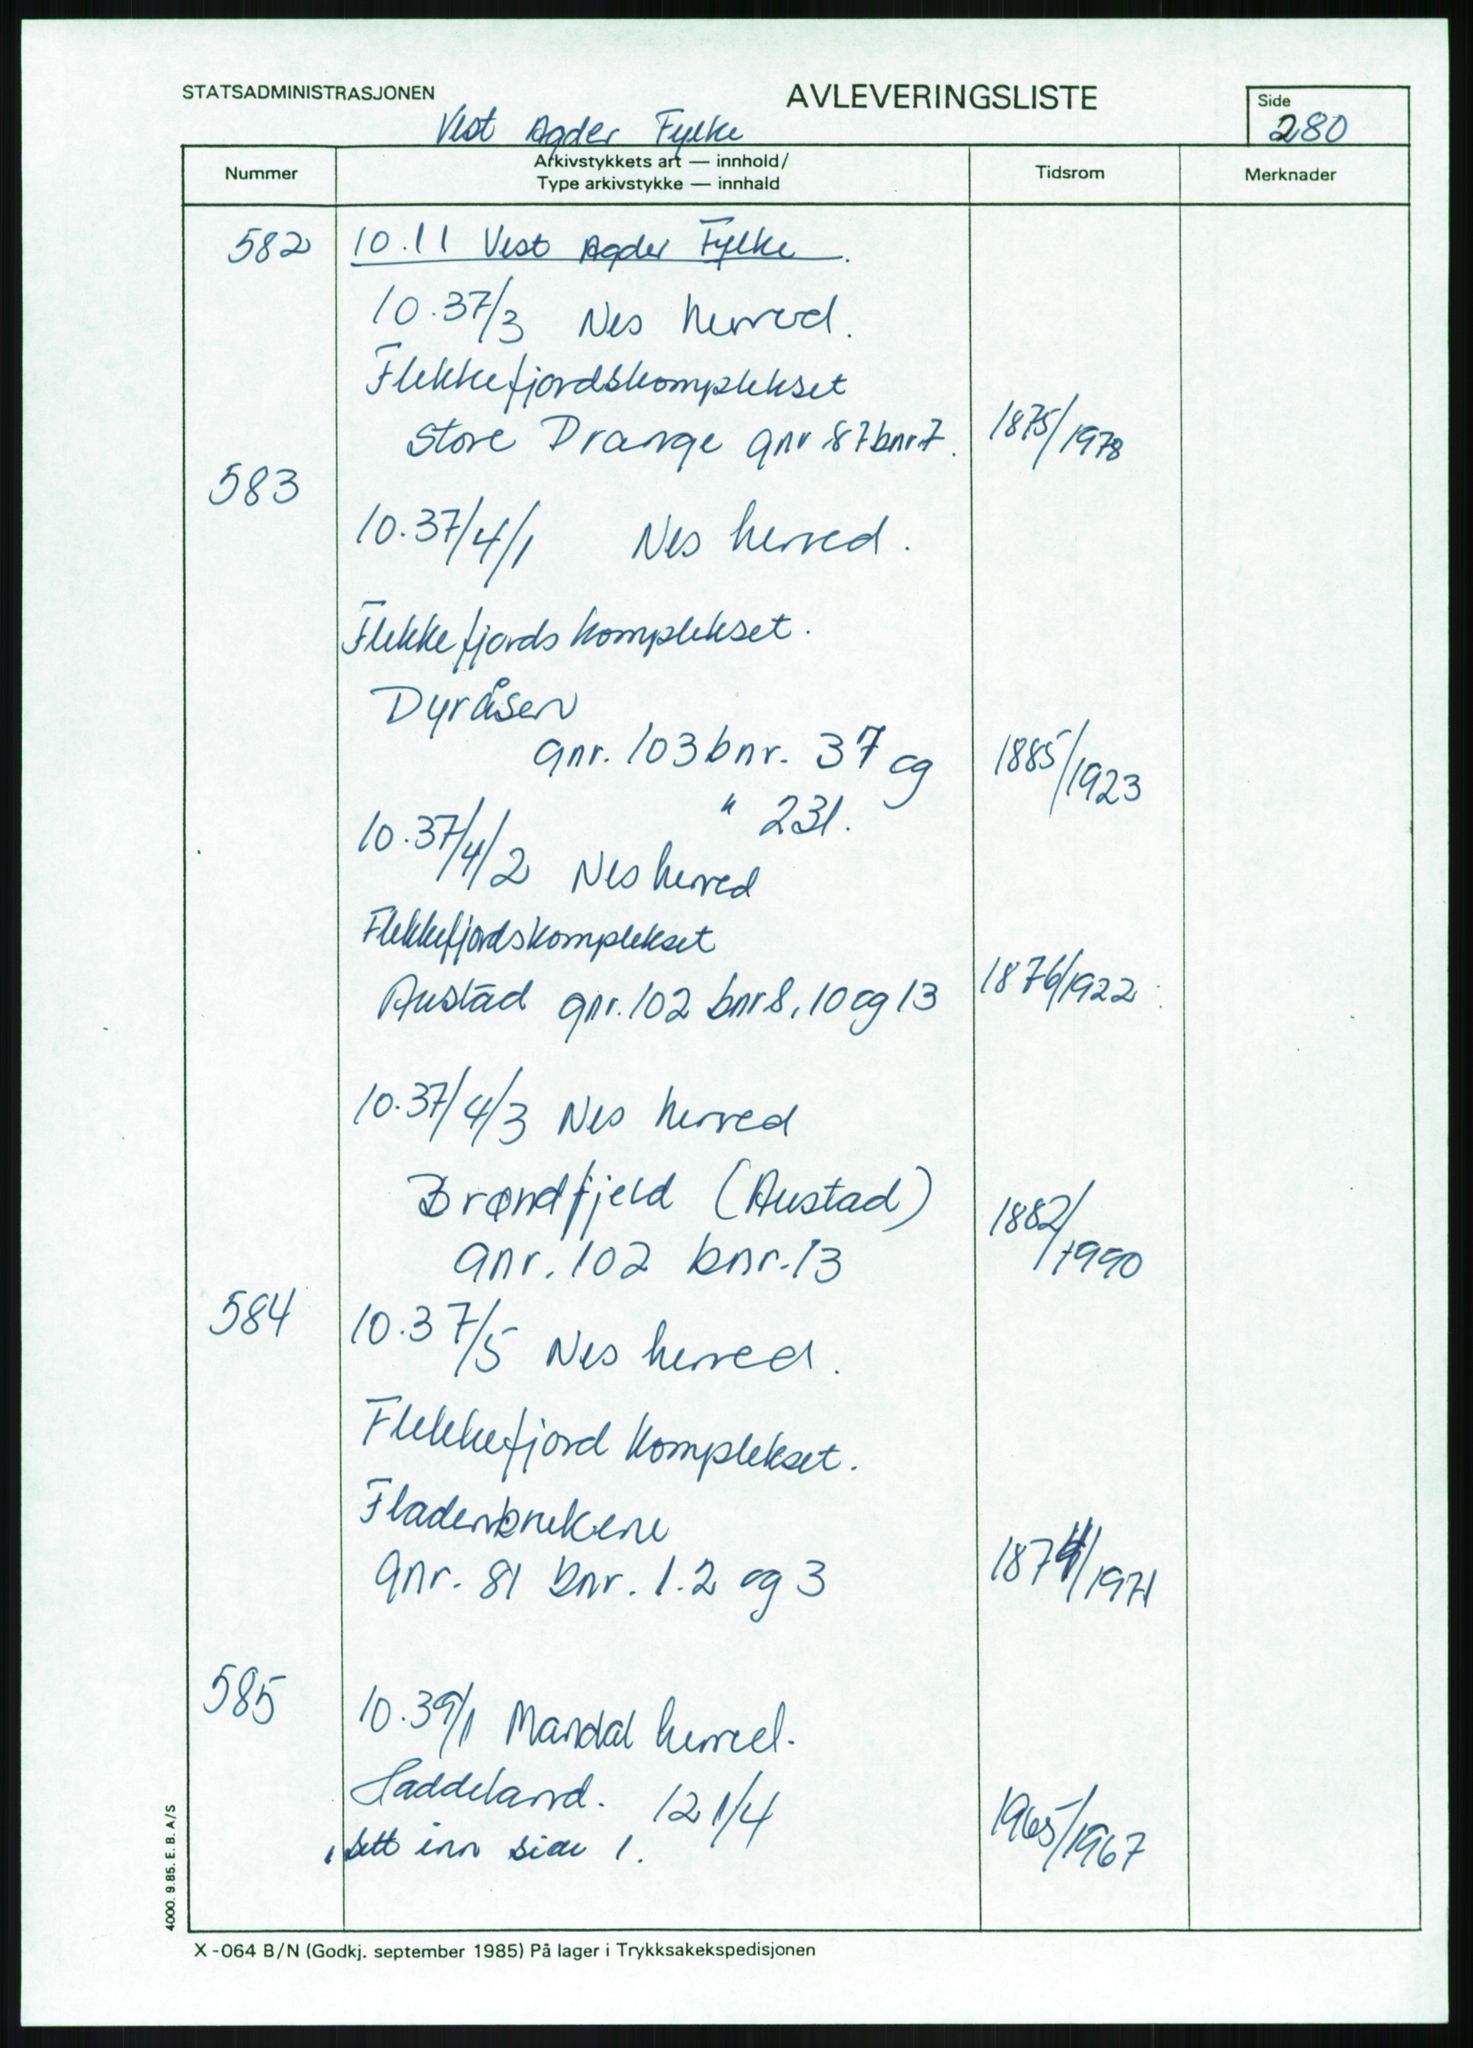 STATSADMINISTRASJONEN
AVLEVERINGSLISTE
Side
280
Vest Agder Fylke
Nummer
Arkivstykkets art — innhold/
Type arkivstykke — innhald
Tidsrom
Merknader
582 10.11 Vest Agder Fylke.
10.37/3 Nes herred.
Flekkefjordskomplekset
Store Drange gnr 87 bnr 7. 1875/1978
583
10.37/4/1 Nes herred.
Flekkefjordskomplekset.
Dyråsen
gnr. 103 bnr. 37 og 1885/1923
" 231.
10.37/4/2 Nes herred
Flekkefjordskomplekset
Austad gnr. 102 bnr 8, 10 og 13 1876/1922
10.37/4/3 Nes herred
Brøndfjeld (Austad) 1882/1990
gnr. 102 bnr. 13
584 10.37/5 Nes herred.
Flekkefjord komplekset.
Fladenbrukene
gnr. 81 bnr. 1.2 og 3 1874/1971
585
10.39/1 Mandal herred.
Haddeland. 121/4 1965/1967
sett inn side 1.
4000. 9.85. E. B. A/S
X-064 B/N (Godkj. september 1985) På lager i Trykksakekspedisjonen